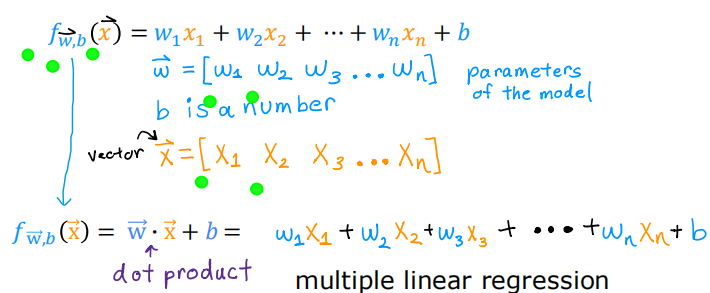 f_{\vec{w},b}(\vec{x}) = w₁x₁ + w₂x₂ + ⋯ + wₙxₙ + b
\vec{w} = [w₁ w₂ w₃ ... wₙ] parameters
b is a number of the model
vector \vec{x} = [x₁ x₂ x₃ ... xₙ]
f_{\vec{w},b}(\vec{x}) = \vec{w} · \vec{x} + b = w₁x₁ + w₂x₂ + w₃x₃ + ⋯ + wₙxₙ + b
dot product
multiple linear regression